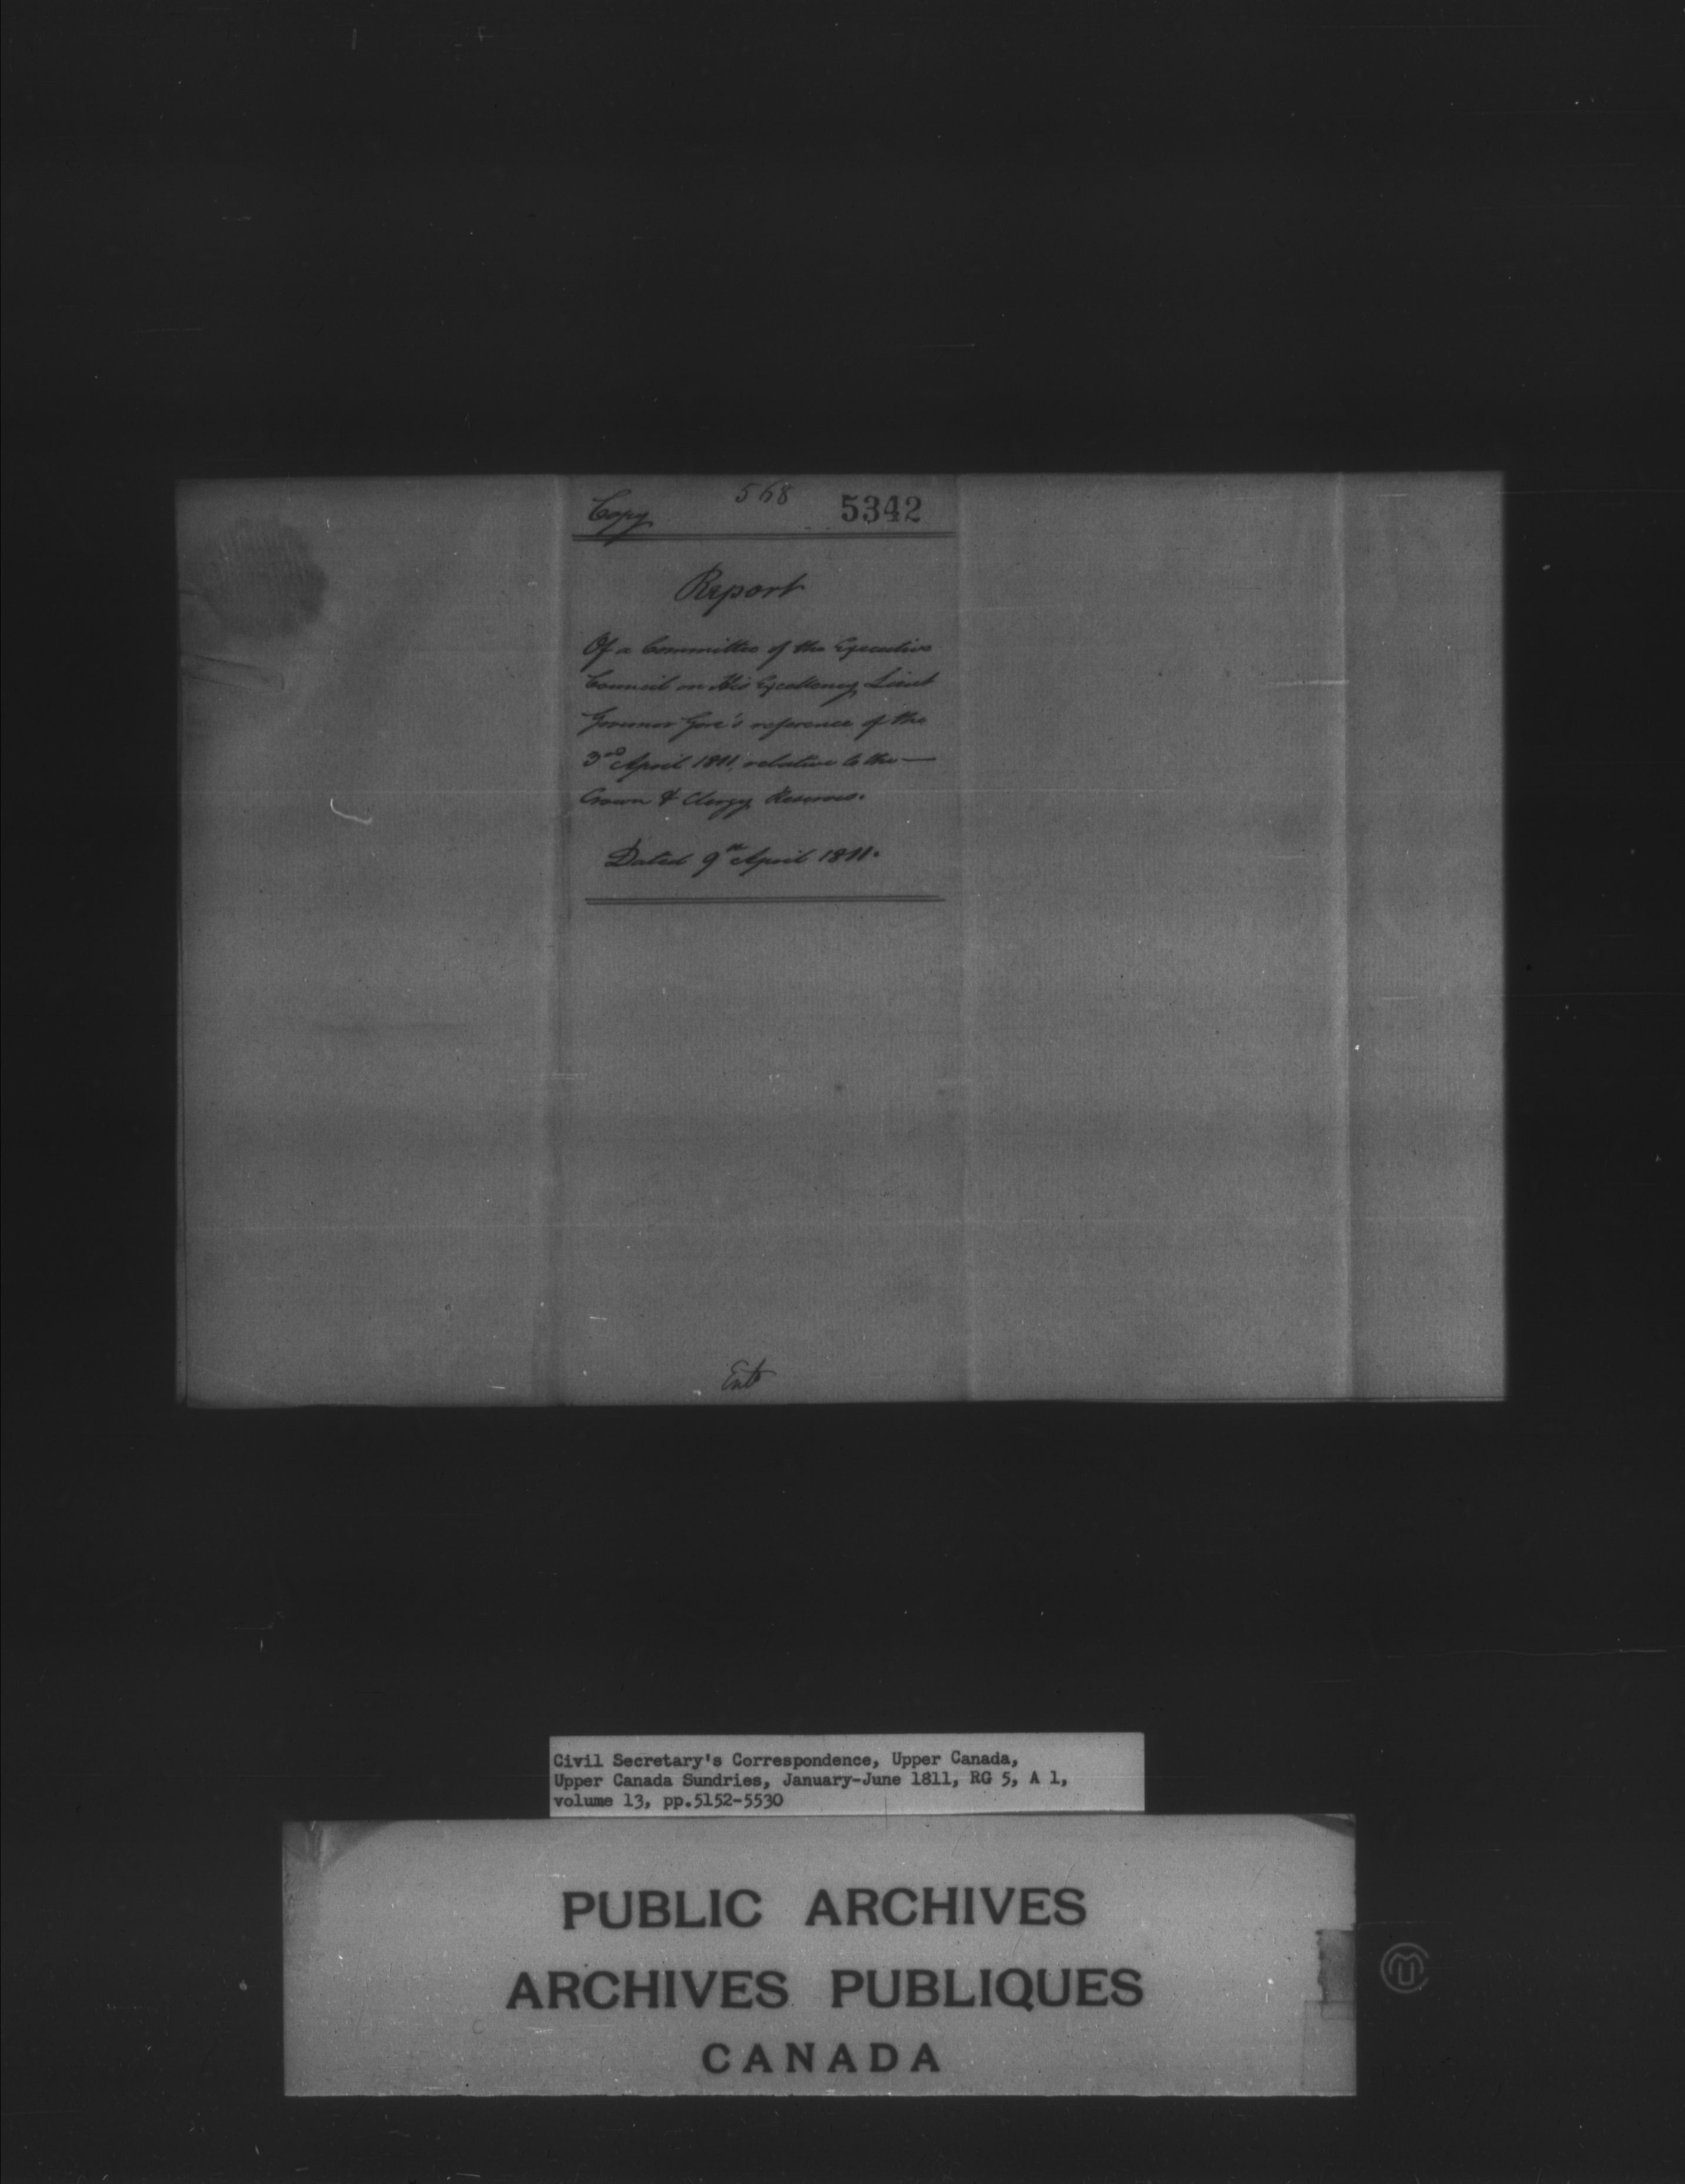 568
Copy 5342
Report
Of a Committee of the Executive
Council on His Excellency Lieut
Governor Gore's reference of the
3rd April 1811, relative to the —
Crown & Clergy Reserves.
Dated 9th April 1811.
Ent
Civil Secretary's Correspondence, Upper Canada,
Upper Canada Sundries, January-June 1811, RG 5, A 1,
volume 13, pp.5152-5530
PUBLIC ARCHIVES
ARCHIVES PUBLIQUES
CANADA